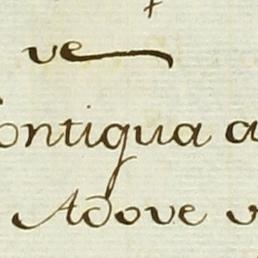 ve
contigua a
Adove v